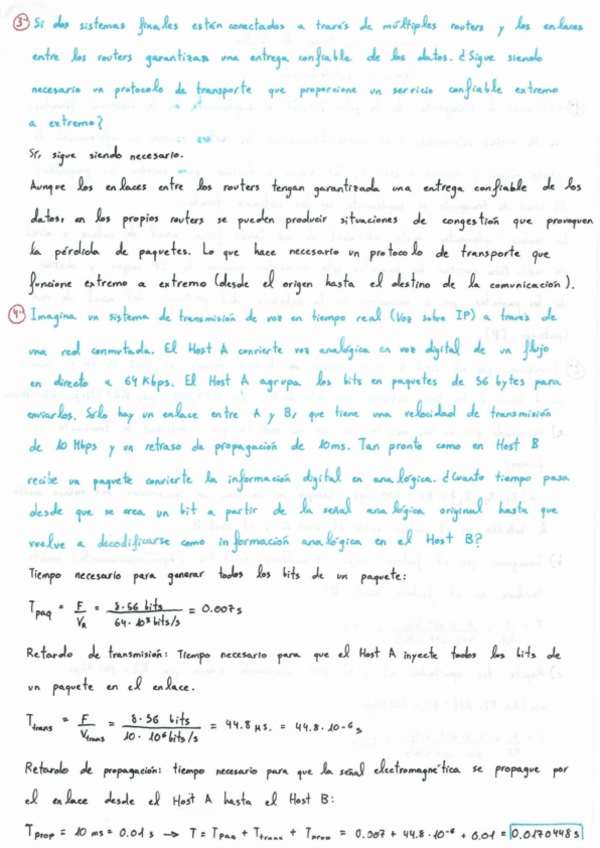 3.- Si dos sistemas finales están conectados a través de múltiples routers y los enlaces
entre los routers garantizan una entrega confiable de los datos. ¿Sigue siendo
necesario un protocolo de transporte que proporcione un servicio confiable extremo
a extremo?
Sí, sigue siendo necesario.
Aunque los enlaces entre los routers tengan garantizada una entrega confiable de los
datos, en los propios routers se pueden producir situaciones de congestión que provoquen
la pérdida de paquetes. Lo que hace necesario un protocolo de transporte que
funcione extremo a extremo (desde el origen hasta el destino de la comunicación).
4.- Imagina un sistema de transmisión de voz en tiempo real (Voz sobre IP) a través de
una red conmutada. El Host A convierte voz analógica en voz digital de un flujo
en directo a 64 Kbps. El Host A agrupa los bits en paquetes de 56 bytes para
enviarlos. Sólo hay un enlace entre A y B, que tiene una velocidad de transmisión
de 10 Mbps y un retraso de propagación de 10ms. Tan pronto como en Host B
recibe un paquete convierte la información digital en analógica. ¿Cuanto tiempo pasa
desde que se crea un bit a partir de la señal analógica original hasta que
vuelve a decodificarse como información analógica en el Host B?
Tiempo necesario para generar todos los bits de un paquete:
Tpaq = F/VA = 8·56 bits / 64·10³ bits/s = 0.007 s
Retardo de transmisión: Tiempo necesario para que el Host A inyecte todos los bits de
un paquete en el enlace.
Ttrans = F/Vtrans = 8·56 bits / 10·10⁶ bits/s = 44.8 µs. = 44.8·10⁻⁶ s
Retardo de propagación: tiempo necesario para que la señal electromagnética se propague por
el enlace desde el Host A hasta el Host B:
Tprop = 10 ms = 0.01 s → T = Tpaq + Ttrans + Tprop = 0.007 + 44.8·10⁻⁶ + 0.01 = 0.0170448 s